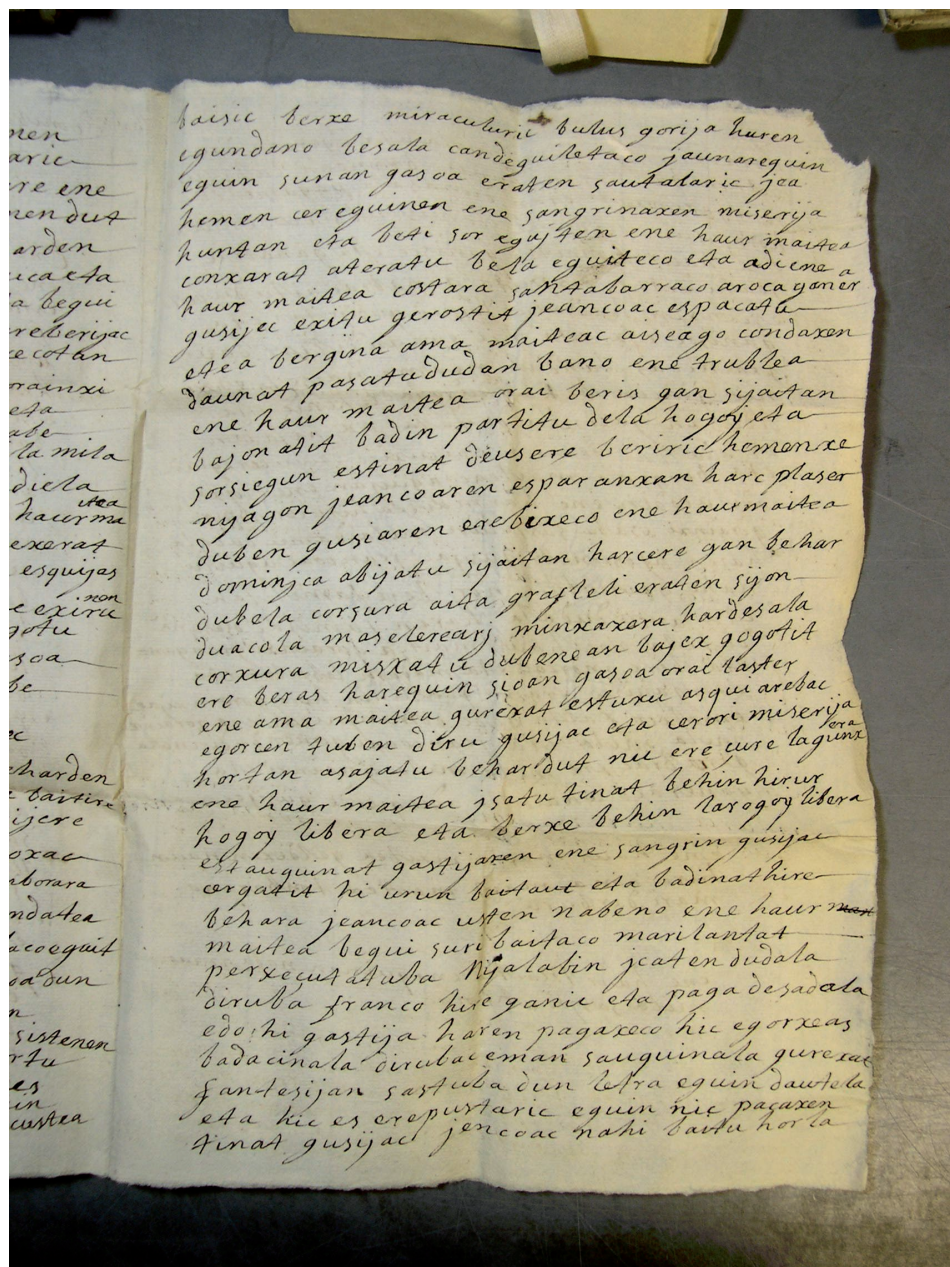 men
aric
ere ene
men dut
arden
uca eta
a begui
reberijac
ecotan
orainxi
eta
abe
la mila
diela
itea
haurma
exerat
esquijas
non
e exiru
gotu
soa
be
ec
eharden
e baitire
ijere
oxac
mborara
ndatea
acoeguit
oa dun
n
sistenen
rtu
es
in
custea
baisic berxe miraculuric bulus gorija haren
egundano besala candeguiletaco jaunarequin
eguin sunan gasoa eraten sautalaric jea
hemen cer eguinen ene sangrinaxen miserija
huntan eta beti sor egujten ene haur maitea
conxarat ateratu bela eguiteco eta adi ene a
haur maitea costara santabarraco aroca ganer
gusijec exitu gerostit jeancoac espacatu
etea bergina ama maiteac aiseago condaxen
daunat pasatu dudan bano ene trublea
ene haur maitea orai beris gan sijaitan
bajonatit badin partitu dela hogoy eta
sorsiegun estinat deusere beriric hemenxe
nyagon jeancoaren esparanxan harc plaser
duben gusiaren erebixeco ene haur maitea
dominjca abijatu sijaitan harcere gan behar
dubela corsura aita grasleli eraten sijon
duacola maselerearj minxaxera hardesala
corxura misxatu dubenean bajex gogotit
ere beras harequin sioan gasoa orai laster
ene ama maitea gurexat estuxu asqui arebac
egorcen tuben diru gusijac eta cerori miserija
hortan asajatu behar dut nic ere cure lagunx
era
ene haur maitea jsatu tinat behin hirur
hogoy libera eta berxe behin larogoy libera
estauquinat gastijaxen ene sangrin gusijac
cergatit hi urun baitaut eta badinat hire
behara jeancoac usten nabeno ene haur
maitea begui suri baitaco marilantat
perxecutatuba Nijalabin jcaten dudala
diruba franco hire ganic eta paga desadala
edo hi gastija haren pagaxeco hic egorxeas
badacinala dirubac eman sauguinala gurexat
fantesijan sastuba dun letra eguin dautela
eta hic es erepustaric eguin nic pagaxen
tinat gusijac jencoac nahi baitu horla